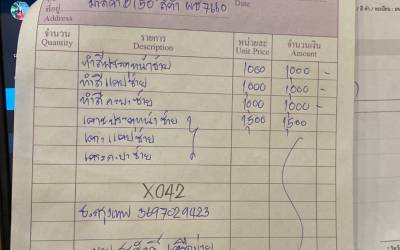 ที่อยู่
Address
มาสด้า D150 สีดำ ผช 7260
Date
จำนวน
Quantity
รายการ
Description
หน่วยละ
Unit Price
จำนวนเงิน
Amount
ทำสีประตูหน้าซ้าย 1000 1000 -
ทำสีแคปซ้าย 1000 1000 -
ทำสีกะบะซ้าย 1000 1000 -
เคาะประตูหน้าซ้าย 1500 1500
เคาะแคปซ้าย
เคาะกะบะซ้าย
X042
ธ.กรุงเทพ 3697029423